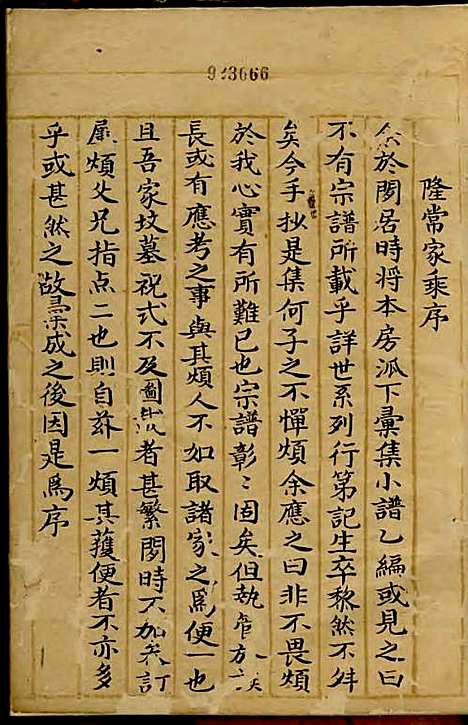 923666
隆常家乘序
余於閑居時将本房派下彙集小譜乙編或見之曰
不有宗譜所載乎詳世系列行第記生卒黎然不舛
矣今手抄是集何子之不憚煩余應之曰非不畏煩
於我心實有所難已也宗譜彰〻固矣但執管於
長或有應考之事與其煩人不如取諸家之爲便一也
且吾家坟墓祝式不及圖載者甚繁閑時不加考訂
屢煩父兄指点二也則自茲一煩其獲便者不亦多
乎或甚然之故彙成之後因是爲序